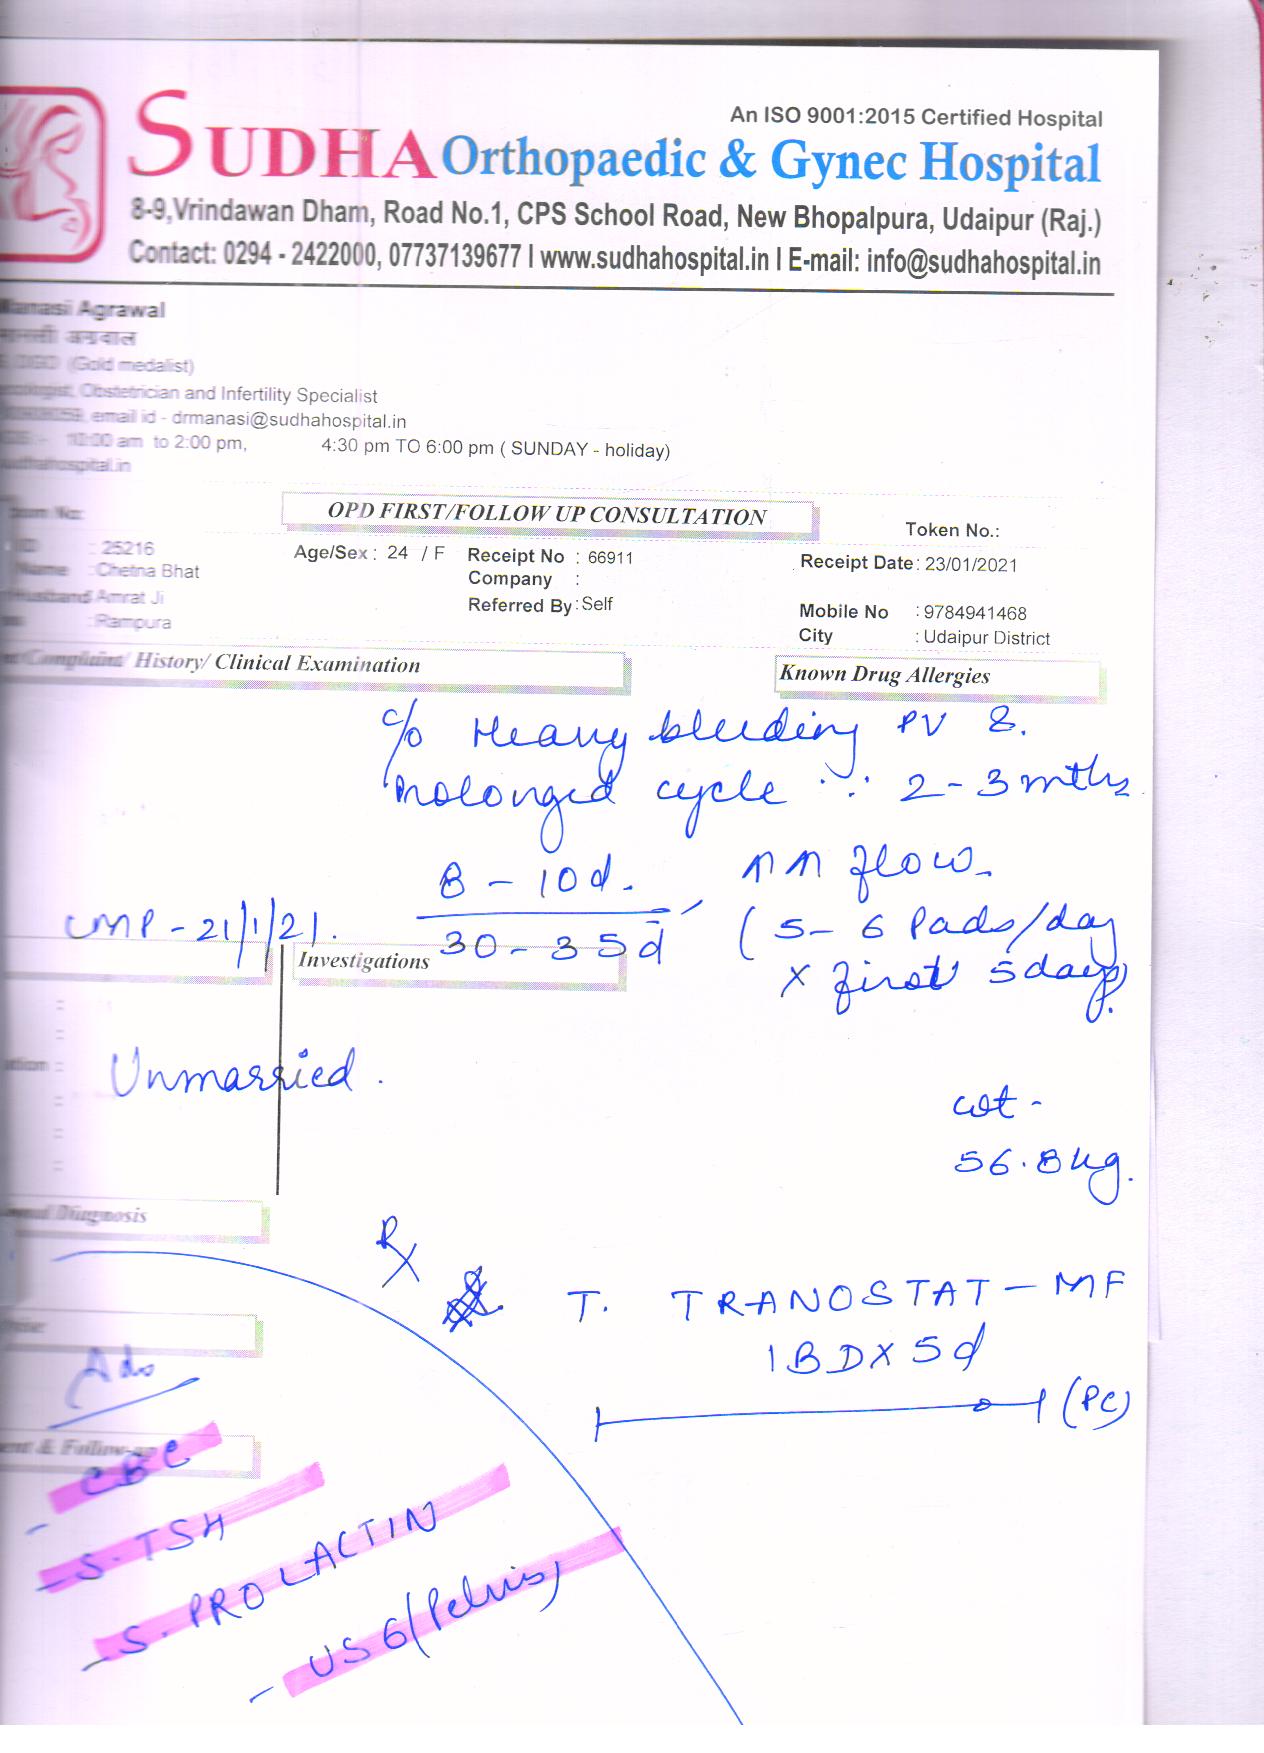 An ISO 9001:2015 Certified Hospital
SUDHA Orthopaedic & Gynec Hospital
8-9,Vrindawan Dham, Road No.1, CPS School Road, New Bhopalpura, Udaipur (Raj.)
Contact: 0294 - 2422000, 07737139677 I www.sudhahospital.in I E-mail: info@sudhahospital.in
Manasi Agrawal
अग्रवाल
DGO (Gold medalist)
Obstetrician and Infertility Specialist
email id - drmanasi@sudhahospital.in
10:00 am to 2:00 pm, 4:30 pm TO 6:00 pm ( SUNDAY - holiday)
sudhahospital.in
OPD FIRST/FOLLOW UP CONSULTATION
Token No.:
ID : 25216 Age/Sex : 24 / F Receipt No : 66911 Receipt Date : 23/01/2021
Name : Chetna Bhat Company :
Husband Amrat Ji Referred By : Self Mobile No : 9784941468
: Rampura City : Udaipur District
Complaint/ History/ Clinical Examination
Known Drug Allergies
c/o Heavy bleeding PV &
Prolonged cycle ∵ 2-3 mths
8 - 10d. ↑↑ flow
LMP - 21/1/21. 30 - 35d (5-6 Pads/day
Investigations x first 5days)
Unmarried.
wt -
56.8kg.
Diagnosis
Rx
T. TRANOSTAT-MF
1BDX5d
(PC)
Adv
& Follow-up
- CBC
- S. TSH
- S. PROLACTIN
- USG (Pelvis)